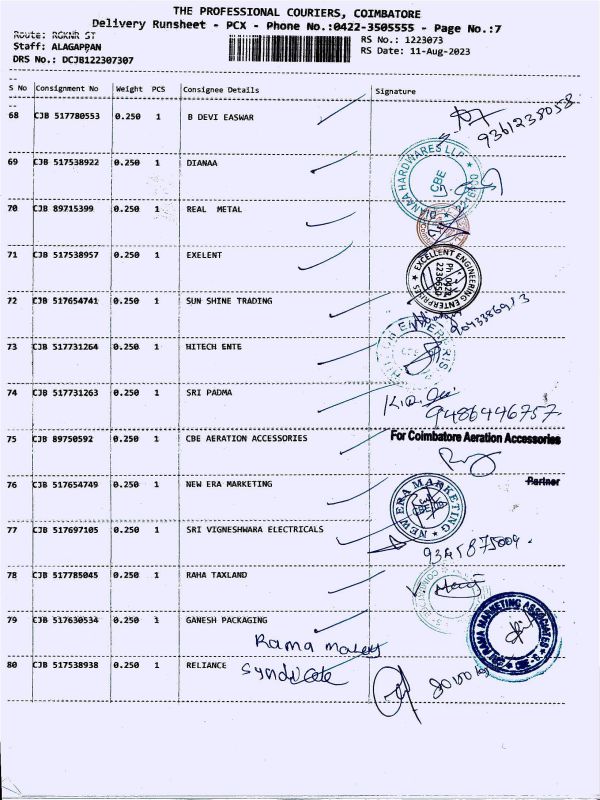 THE PROFESSIONAL COURIERS, COIMBATORE
Delivery Runsheet - PCX - Phone No.:0422-3505555 - Page No.:7
Route: RGKNR ST
RS No.: 1223073
Staff: ALAGAPPAN
RS Date: 11-Aug-2023
DRS No.: DCJB122307307
S No Consignment No Weight PCS Consignee Details Signature
68 CJB 517780553 0.250 1 B DEVI EASWAR
9361238058
69 CJB 517538922 0.250 1 DIANAA
DIANAA HARDWARES LLP
CBE
70 CJB 89715399 0.250 1 REAL METAL
71 CJB 517538957 0.250 1 EXELENT
EXCELLENT ENGINEERING ENTERPRISES
72 CJB 517654741 0.250 1 SUN SHINE TRADING
73 CJB 517731264 0.250 1 HITECH ENTE
74 CJB 517731263 0.250 1 SRI PADMA
9486446757
75 CJB 89750592 0.250 1 CBE AERATION ACCESSORIES
For Coimbatore Aeration Accessories
Partner
76 CJB 517654749 0.250 1 NEW ERA MARKETING
NEW ERA MARKETING
77 CJB 517697105 0.250 1 SRI VIGNESHWARA ELECTRICALS
9345875004
78 CJB 517785045 0.250 1 RAHA TAXLAND
79 CJB 517630534 0.250 1 GANESH PACKAGING
SRI RAMA MARKETING ASSOCIATES
Rama
80 CJB 517538938 0.250 1 RELIANCE
Syndicate